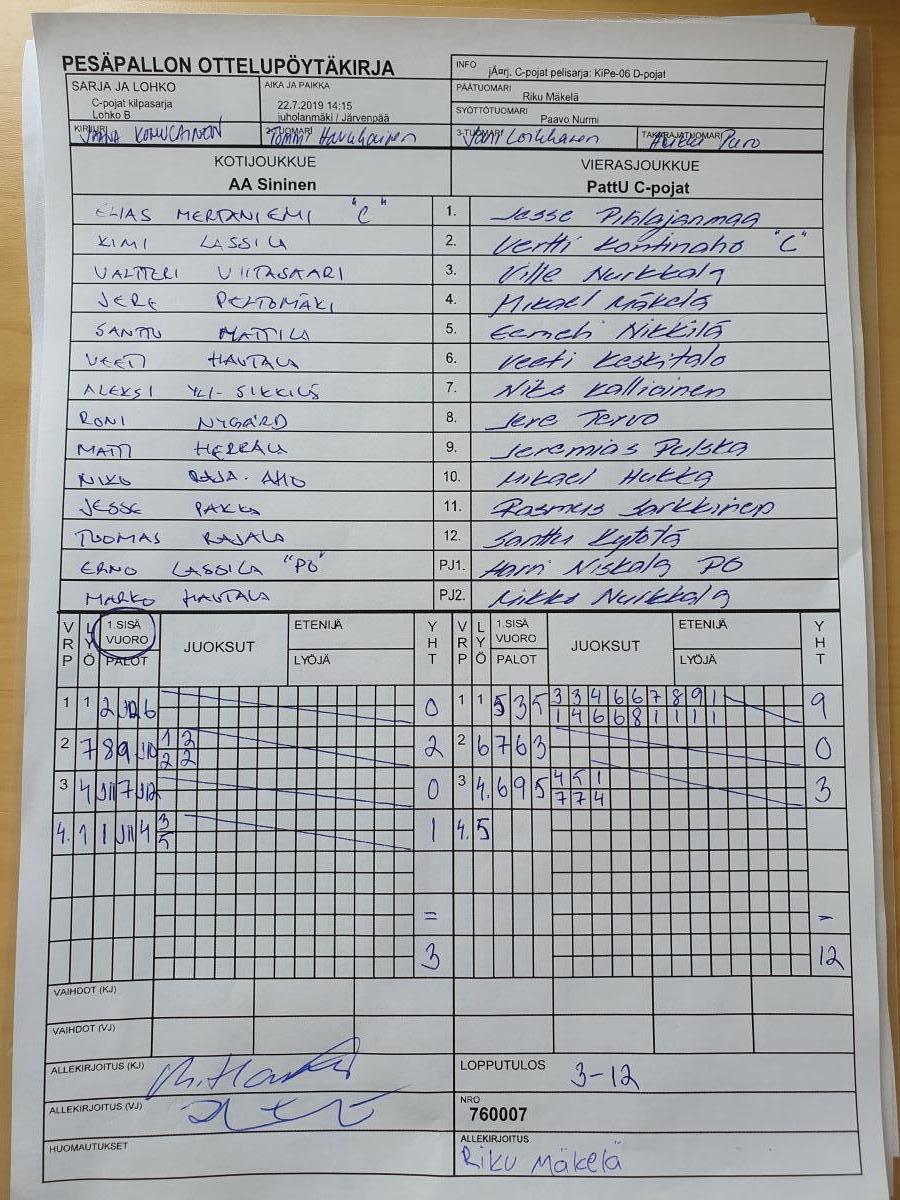 PESÄPALLON OTTELUPÖYTÄKIRJA
INFO jÃ¤rj. C-pojat pelisarja: KiPe-06 D-pojat
SARJA JA LOHKO
C-pojat kilpasarja
Lohko B
AIKA JA PAIKKA
22.7.2019 14:15
juholanmäki / Järvenpää
PÄÄTUOMARI Riku Mäkelä
SYÖTTÖTUOMARI Paavo Nurmi
KIRJURI
2-TUOMARI
3-TUOMARI
TAKARAJATUOMARI Puro
KOTIJOUKKUE
AA Sininen
VIERASJOUKKUE
PattU C-pojat
ELIAS MERTANIEMI "C" 1. Jesse Pihlajanmaa
KIMI LASSILA 2. Vertti Kontinaho "C"
VALTTERI VIITASAARI 3. Ville Nurkkala
JERE PELTOMÄKI 4. Mikael Mäkelä
SANTTU MATTILA 5. Eemeli Nikkilä
VEETI HAUTALA 6. Veeti Keskitalo
ALEKSI YLI-SIKKILÄ 7. Niko Kallioinen
RONI NYGÅRD 8. Jere Tervo
MATTI HERRALA 9. Jeremias Pulska
NIKO RAJA-AHO 10. Mikael Hukka
JESSE PAKKA 11. Rasmus Sarkkinen
TUOMAS RAJALA 12. Santtu Kytölä
ERNO LASSILA "PO" PJ1. Harri Niskala PO
MARKO HAUTALA PJ2. Mikko Nurkkala
VRP LYÖ 1.SISÄ VUORO PALOT JUOKSUT ETENIJÄ LYÖJÄ YHT VRP LYÖ 1.SISÄ VUORO PALOT JUOKSUT ETENIJÄ LYÖJÄ YHT
1 1 2 J12 6 0 1 1 5 3 5 3 3 4 6 6 7 8 9 1 9
1 4 6 6 8 1 1 1 1
2 7 8 9 J10 1 2 2 2 6 7 6 3 0
2 2
3 4 J11 7 J12 0 3 4. 6 9 5 4 5 1 3
7 7 4
4. 1 1 J11 4 3 1 4. 5
5
= =
3 12
VAIHDOT (KJ)
VAIHDOT (VJ)
ALLEKIRJOITUS (KJ)
LOPPUTULOS 3-12
ALLEKIRJOITUS (VJ)
NRO
760007
HUOMAUTUKSET
ALLEKIRJOITUS
Riku Mäkelä